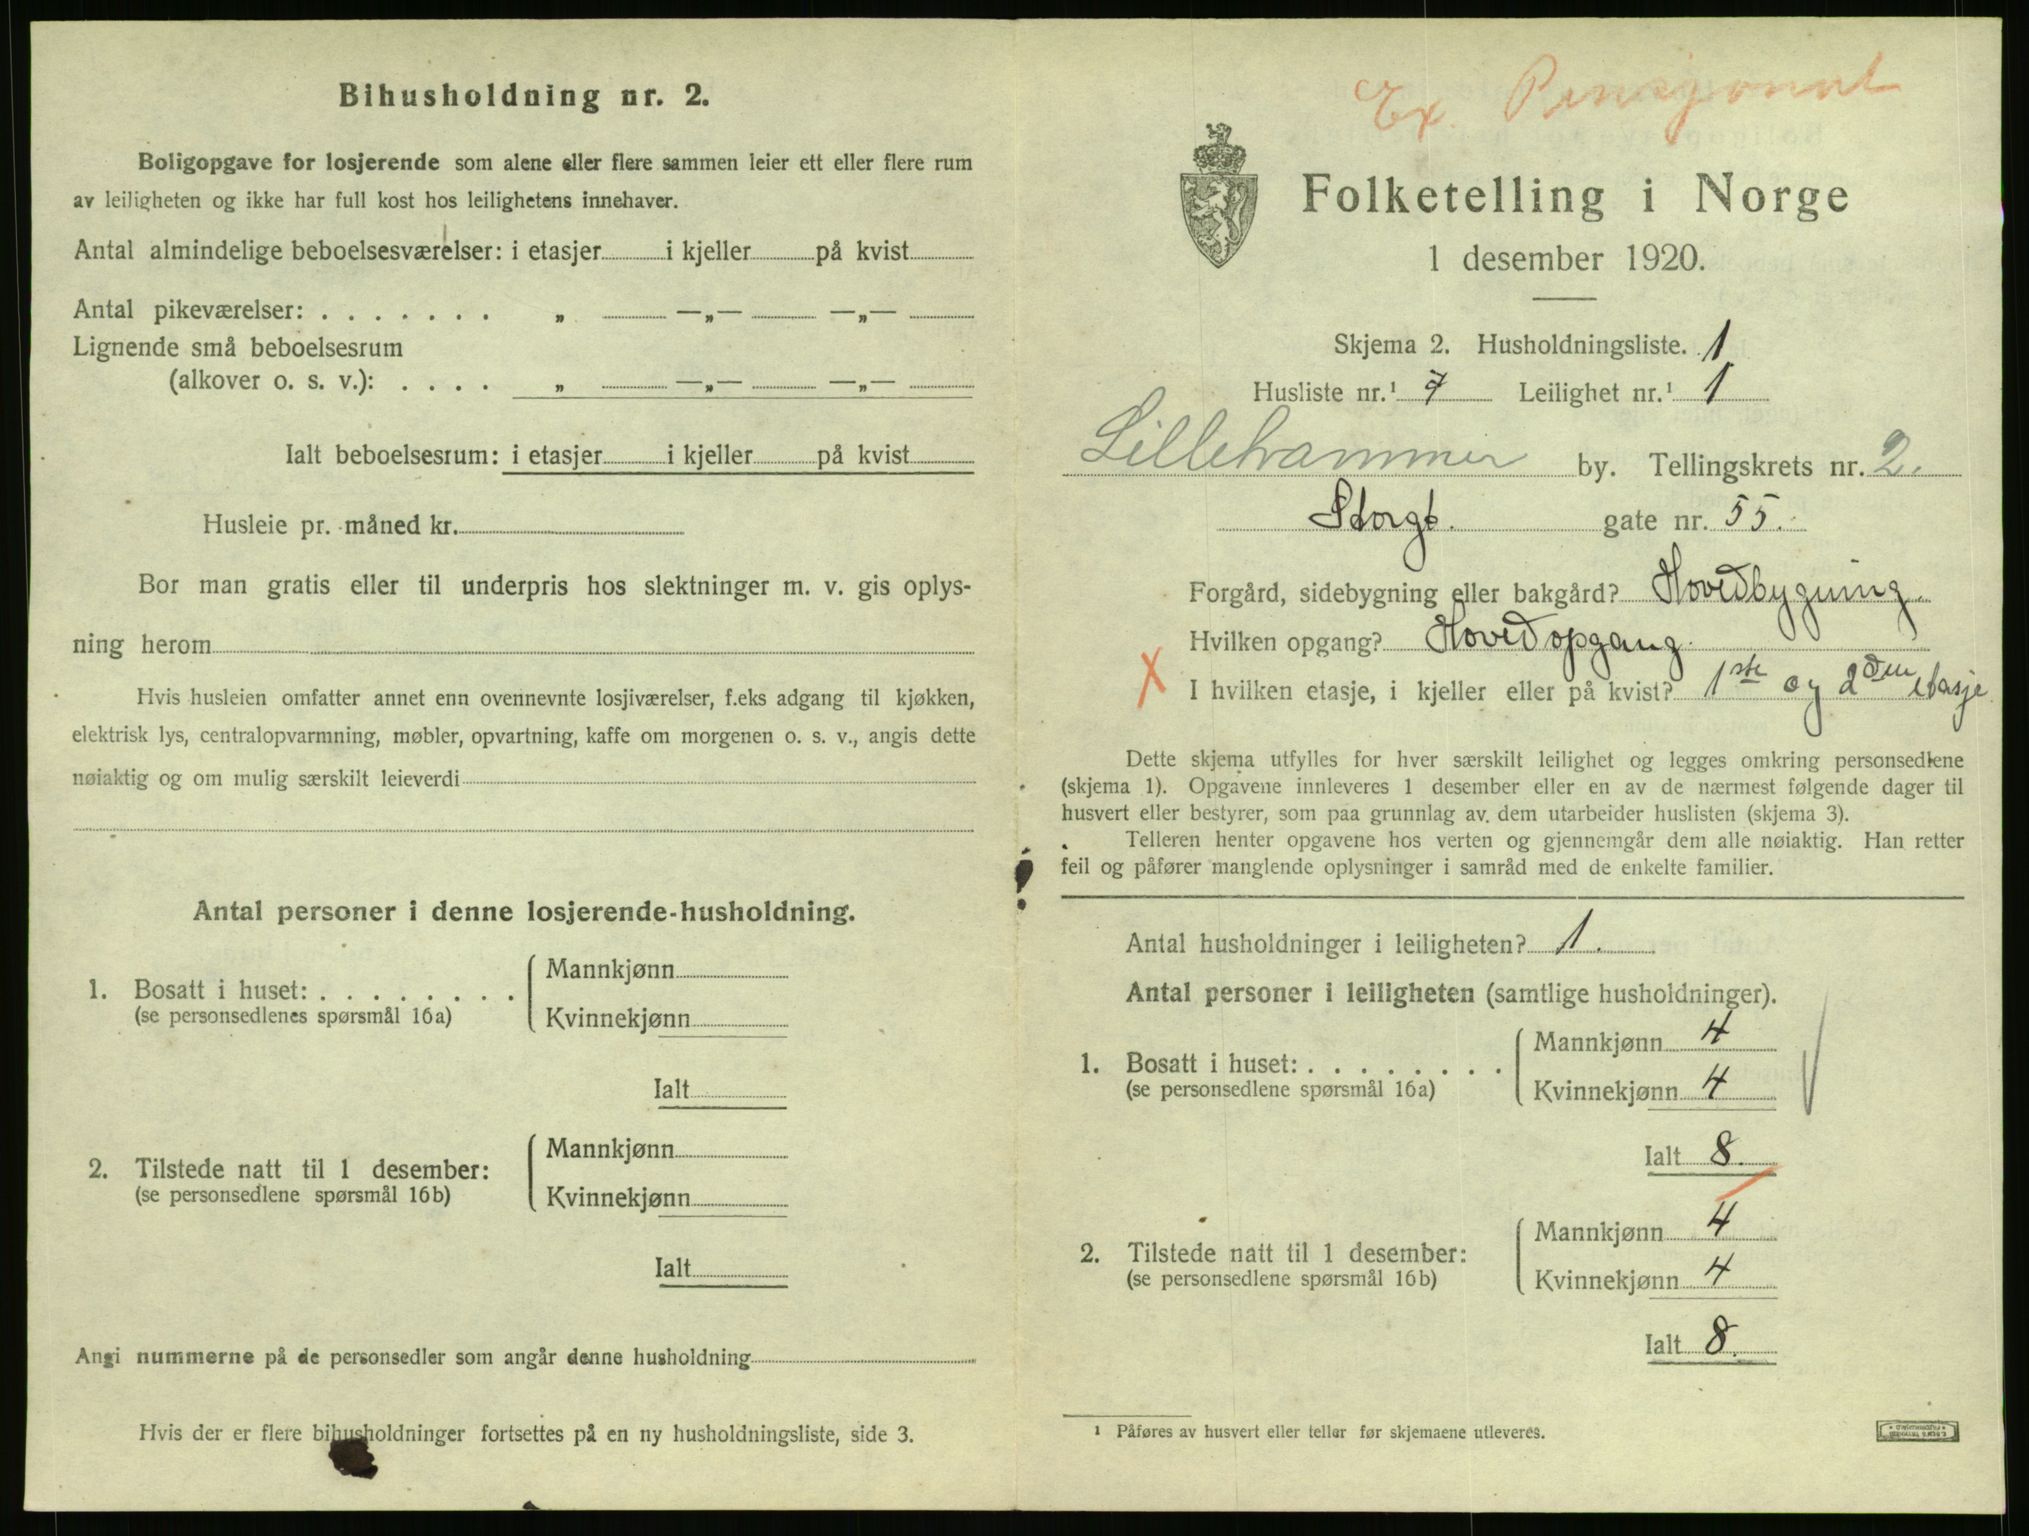 Bihusholdning nr. 2.
Boligopgave for losjerende som alene eller flere sammen leier ett eller flere rum
av leiligheten og ikke har full kost hos leilighetens innehaver.
Antal almindelige beboelsesværelser: i etasjer i kjeller på kvist
Antal pikeværelser: . . . . . . . „ —„— —„—
Lignende små beboelsesrum
(alkover o. s. v.): . . . . „ —„— —„—
Ialt beboelsesrum: i etasjer i kjeller på kvist
Husleie pr. måned kr.
Bor man gratis eller til underpris hos slektninger m. v. gis oplys-
ning herom
Hvis husleien omfatter annet enn ovennevnte losjiværelser, f.eks adgang til kjøkken,
elektrisk lys, centralopvarmning, møbler, opvartning, kaffe om morgenen o. s. v., angis dette
nøiaktig og om mulig særskilt leieverdi
Antal personer i denne losjerende-husholdning.
1. Bosatt i huset: . . . . . . . . Mannkjønn
(se personsedlenes spørsmål 16a) Kvinnekjønn
Ialt
2. Tilstede natt til 1 desember: Mannkjønn
(se personsedlene spørsmål 16b) Kvinnekjønn
Ialt
Angi nummerne på de personsedler som angår denne husholdning
Hvis der er flere bihusholdninger fortsettes på en ny husholdningsliste, side 3.
Ex. Pensjonat
Folketelling i Norge
1 desember 1920.
Skjema 2. Husholdningsliste. 1
Husliste nr.¹ 7 Leilighet nr.¹ 1
Lillehammer by. Tellingskrets nr. 2.
Storgt. gate nr. 55.
Forgård, sidebygning eller bakgård? Hovedbygning.
Hvilken opgang? Hovedopgang.
X I hvilken etasje, i kjeller eller på kvist? 1ste og 2den etasje
Dette skjema utfylles for hver særskilt leilighet og legges omkring personsedlene
(skjema 1). Opgavene innleveres 1 desember eller en av de nærmest følgende dager til
husvert eller bestyrer, som paa grunnlag av dem utarbeider huslisten (skjema 3).
Telleren henter opgavene hos verten og gjennemgår dem alle nøiaktig. Han retter
feil og påfører manglende oplysninger i samråd med de enkelte familier.
Antal husholdninger i leiligheten? 1.
Antal personer i leiligheten (samtlige husholdninger).
1. Bosatt i huset: . . . . . . . . Mannkjønn 4
(se personsedlene spørsmål 16a) Kvinnekjønn 4
Ialt 8.
2. Tilstede natt til 1 desember: Mannkjønn 4
(se personsedlene spørsmål 16b) Kvinnekjønn 4
Ialt 8.
¹ Påføres av husvert eller teller før skjemaene utleveres.